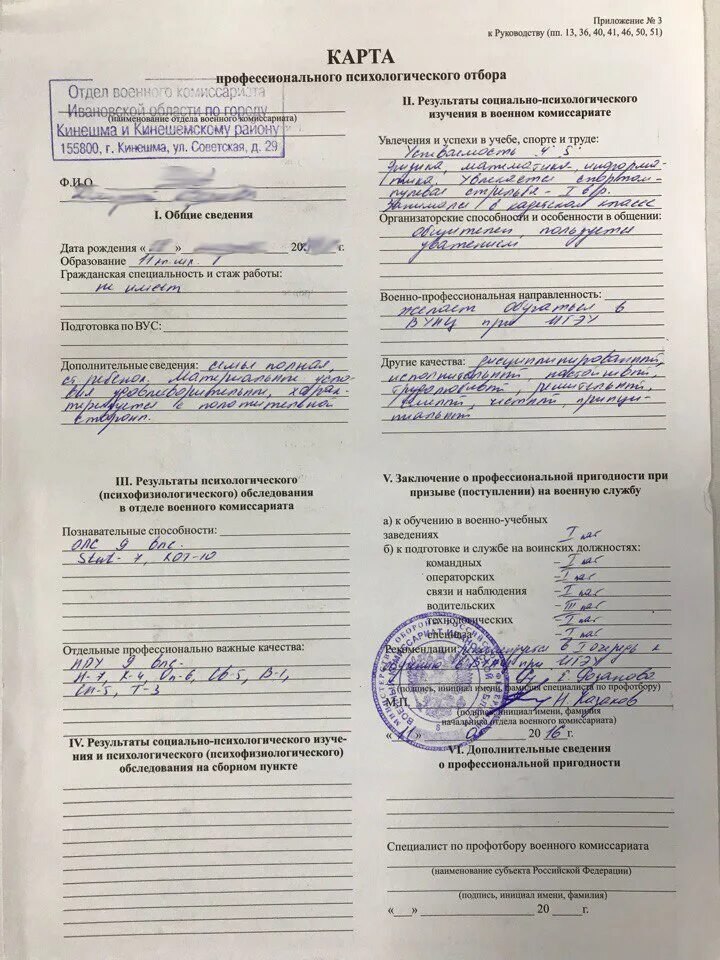 Приложение № 3
к Руководству (пп. 13, 36, 40, 41, 46, 50, 51)
КАРТА
профессионального психологического отбора
Отдел военного комиссариата
Ивановской области по городу
Кинешма и Кинешемскому району
155800, г. Кинешма, ул. Советская, д. 29
(наименование отдела военного комиссариата)
Ф.И.О
I. Общие сведения
Дата рождения «    »    20    г.
Образование 11 кл.
Гражданская специальность и стаж работы:
не имеет
Подготовка по ВУС:
Дополнительные сведения: семья полная,
ребенок. Материальные усло-
вия удовлетворительные, харак-
теризуется с положительной
стороны.
II. Результаты социально-психологического
изучения в военном комиссариате
Увлечения и успехи в учебе, спорте и труде:
Успеваемость "4", 5:
физика, математика, информа-
тика. Увлекается спортом
пулевая стрельба - I
занимался в кадетском классе
Организаторские способности и особенности в общении:
общителен, пользуется
уважением
Военно-профессиональная направленность:
желает обучаться в
ВУНЦ при ИГЭУ
Другие качества: дисциплинированный,
исполнительный, настойчивый,
трудолюбивый, решительный,
честный, принци-
пиальный
III. Результаты психологического
(психофизиологического) обследования
в отделе военного комиссариата
Познавательные способности:
ОПС 9 бпс.
7, КОТ-10
Отдельные профессионально важные качества:
НПУ 9 бпс.
К-4, Оп-6, Сб-5, В-1,
Сп-5, Т-3
IV. Результаты социально-психологического изуче-
ния и психологического (психофизиологического)
обследования на сборном пункте
V. Заключение о профессиональной пригодности при
призыве (поступлении) на военную службу
а) к обучению в военно-учебных
заведениях I кат
б) к подготовке и службе на воинских должностях:
командных - I кат
операторских - I кат
связи и наблюдения - I кат
водительских - III кат
технологических - I кат
специальн I кат
Рекомендации: рекомендуется в I очередь к
обучению в ВУНЦ при ИГЭУ
Розанова
(подпись, инициал имени, фамилия специалиста по профотбору)
М.П. Н Казаков
(подпись, инициал имени, фамилия
начальника отдела военного комиссариата)
« 11 » 20 16 г.
VI. Дополнительные сведения
о профессиональной пригодности
Специалист по профотбору военного комиссариата
(наименование субъекта Российской Федерации)
(подпись, инициал имени, фамилия)
«___» ______________ 20 ____ г.